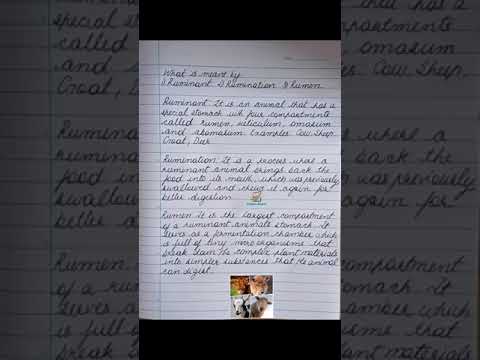 What is meant by
1) Ruminant 2) Rumination 3) Rumen
Ruminant It is an animal that has a
special stomach with four compartments
called rumen, reticulum, omasum
and abomasum Examples Cow, Sheep,
Goat, Deer
Rumination It is a process where a
ruminant animal brings back the
food into its mouth, which was previously
swallowed and chew it again for
better digestion
Rumen it is the largest compartment
of a ruminant animals stomach. It
serves as a fermentation chamber which
is full of tiny micro organisms that
break down the complex plant materials
into simpler substances that the animal
can digest.